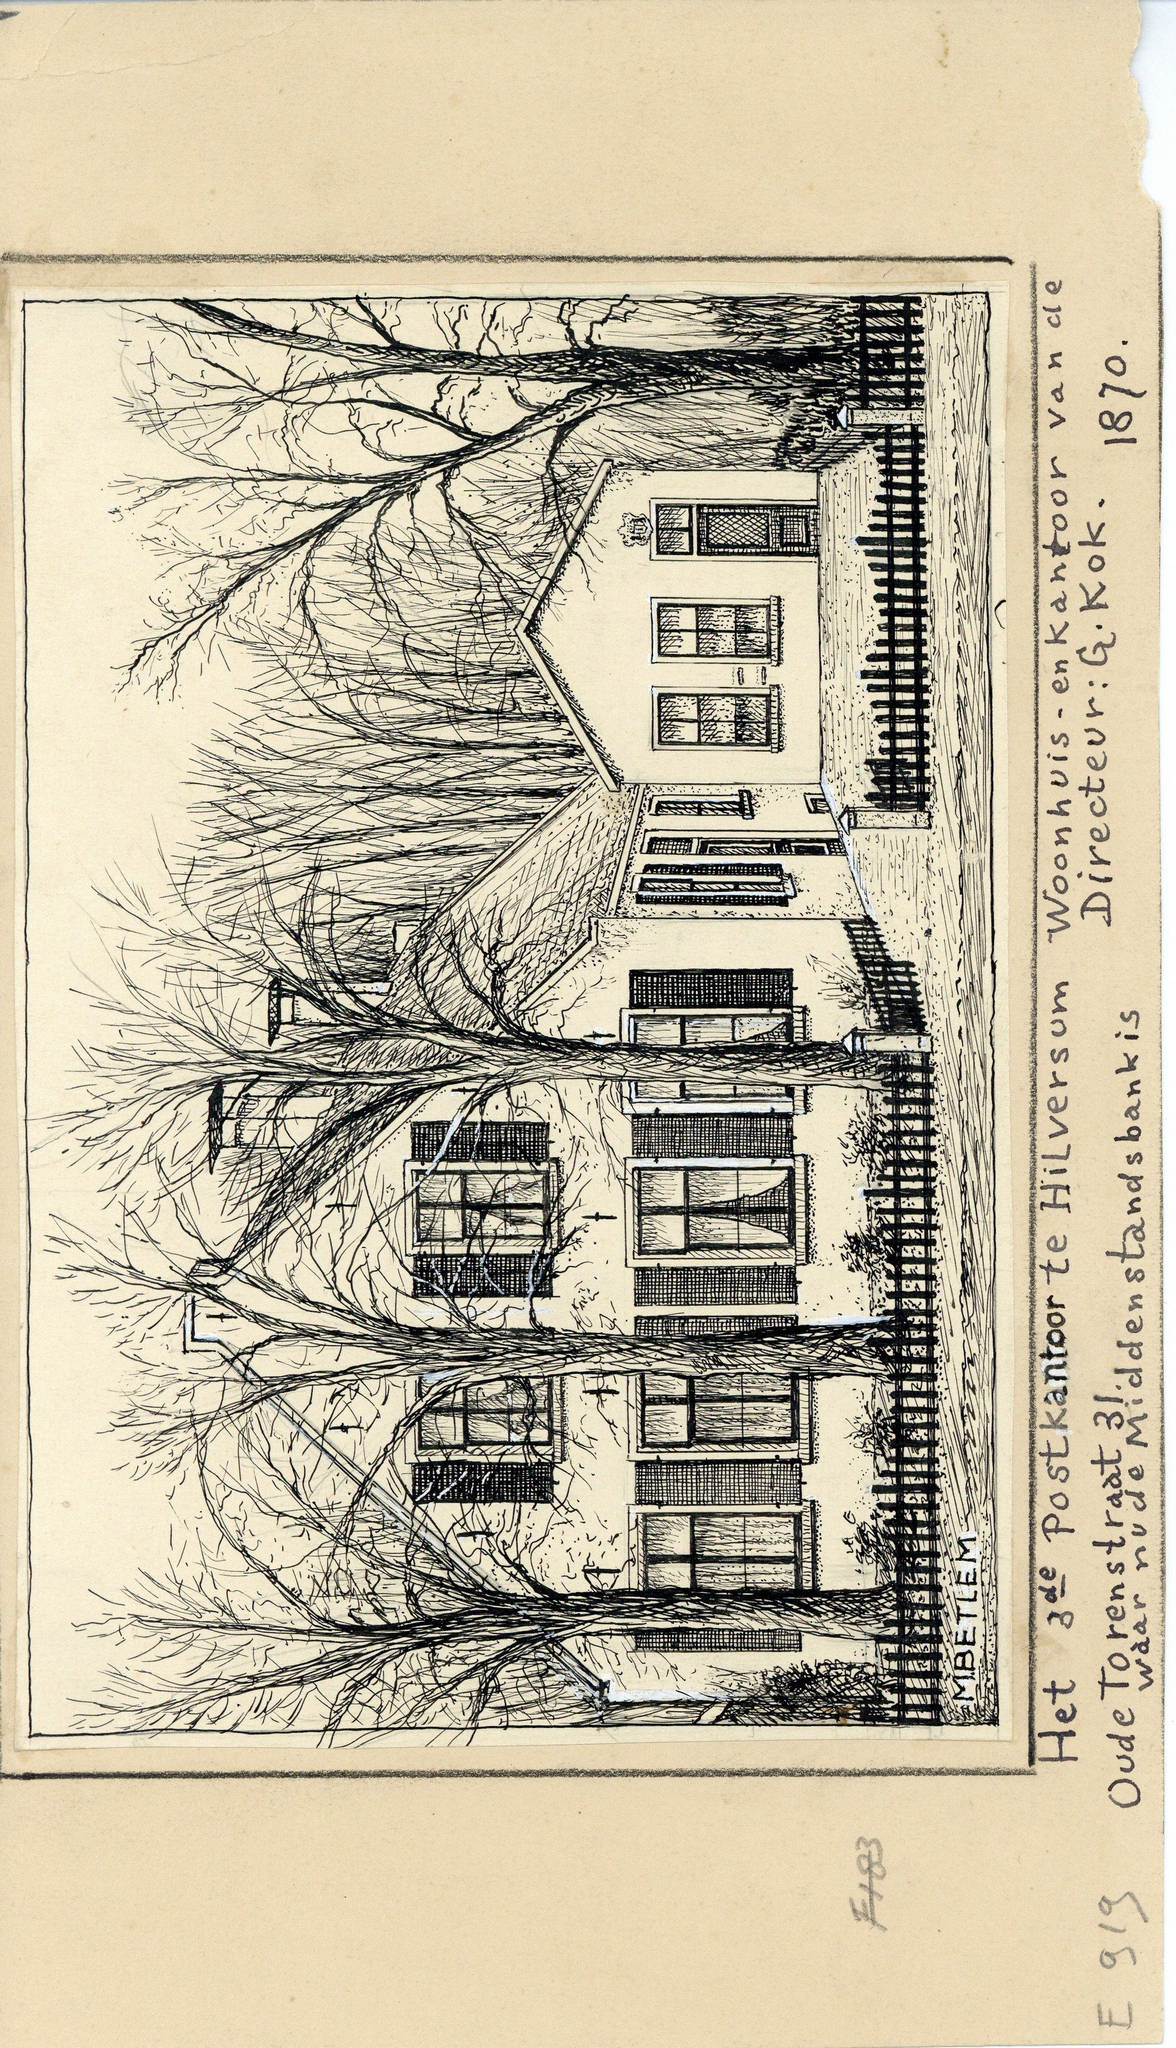 M.BETLEM
Het 3de Postkantoor te Hilversum Woonhuis-en kantoor van de
Oude Torenstraat 31. Directeur: G. Kok. 1870.
waar nu de Middenstandsbank is
E 919
E183